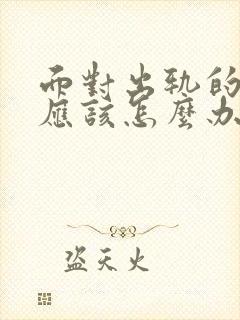 而對出軌的
應該怎麼办
盜天火